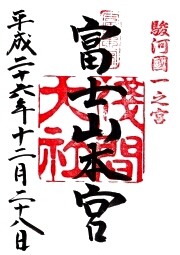 駿河國一之宮
富士山本宮
淺間大社
平成二十六年十二月二十八日